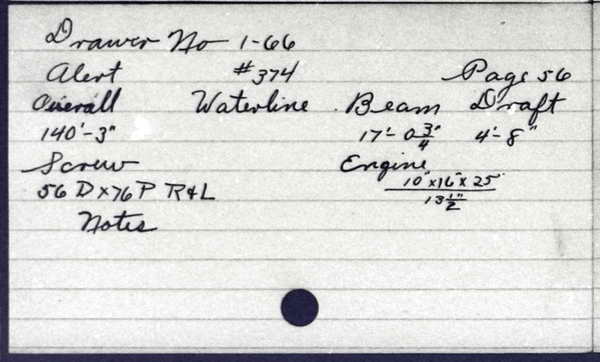 Drawer No 1-66
Alert #374 Page 56
Overall Waterline Beam Draft
140'-3" 17'-0 3/4" 4'-8"
Screw Engine
56 D x 76 P R & L 10" x 16" x 25"
13 1/2"
Notes